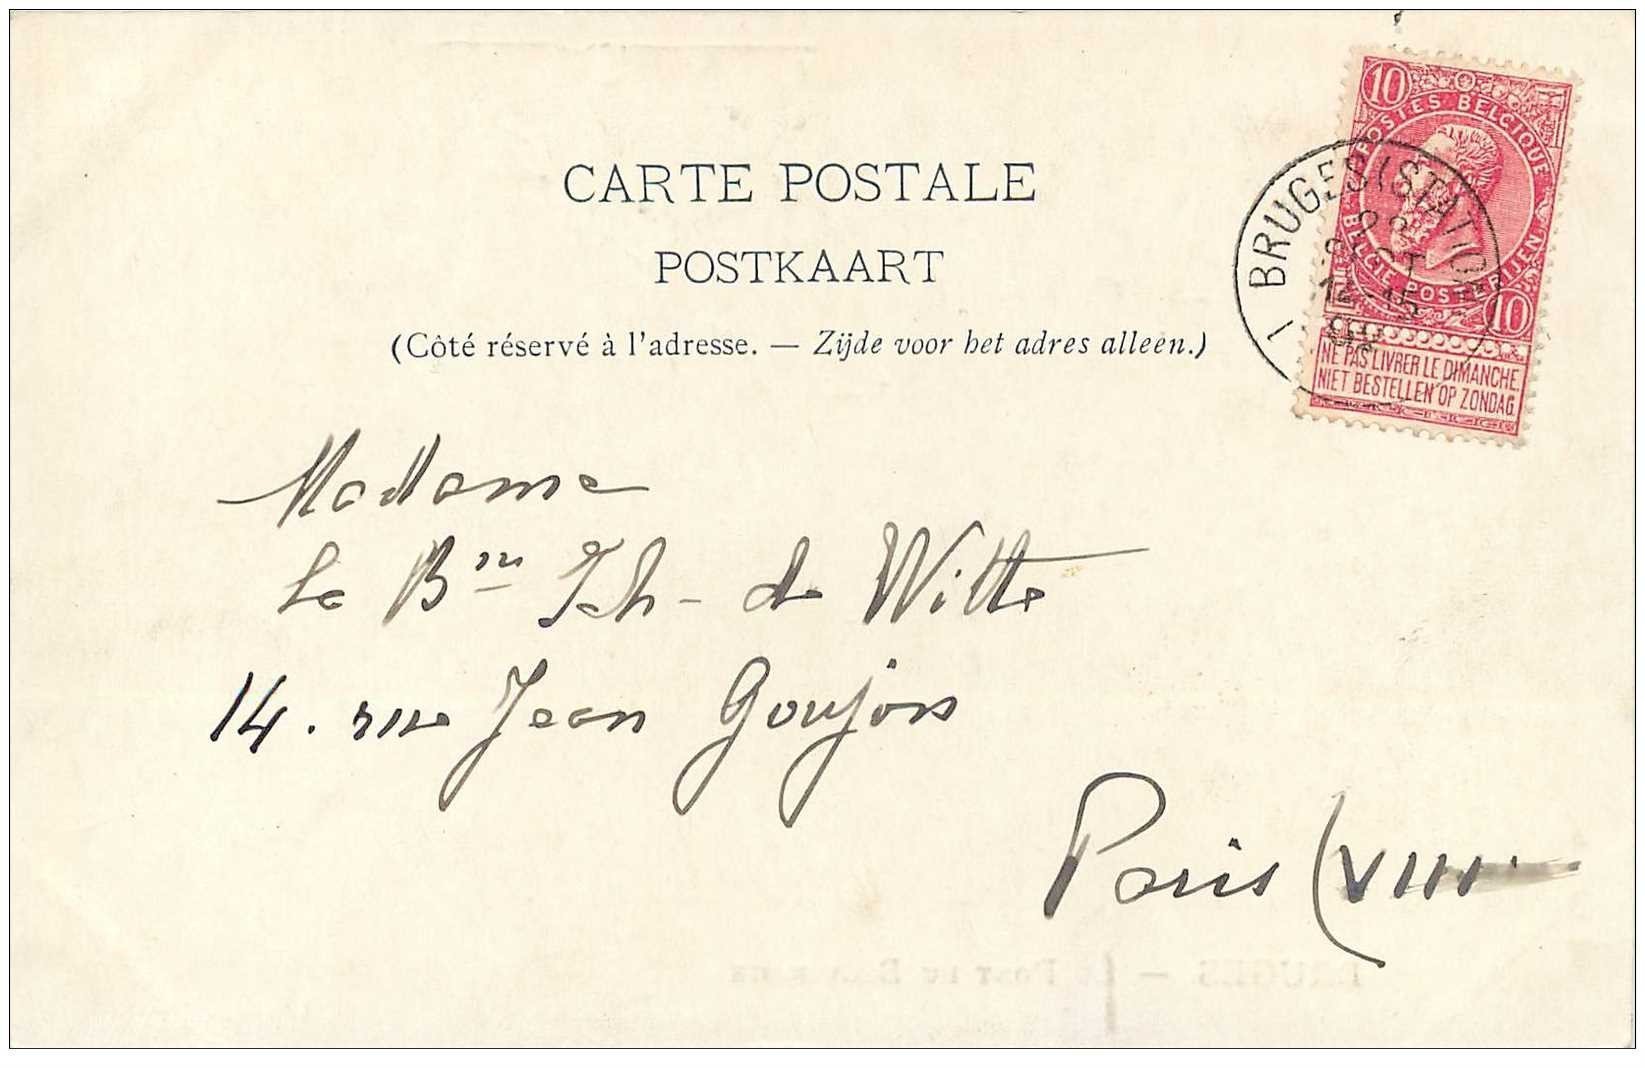 CARTE POSTALE
POSTKAART
(Côté réservé à l'adresse. — Zijde voor het adres alleen.)
10
POSTES BELGIQUE
BELGIE POSTERIJEN
10
NE PAS LIVRER LE DIMANCHE
NIET BESTELLEN OP ZONDAG
BRUGES (STATION
14-15
Madame
la Bne Th- de Witte
14. rue Jean Goujon
Paris (VIII
BRUGES —